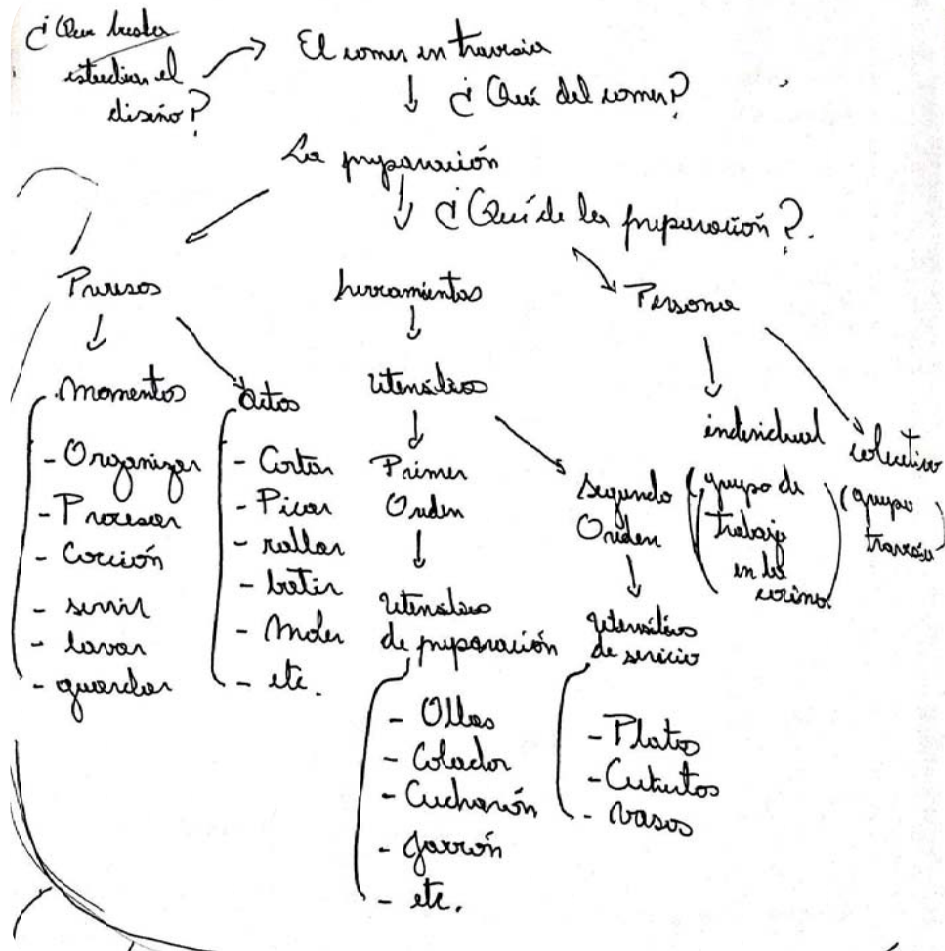 ¿Que busca
estudiar el
diseño?
El comer en travesía
¿Qué del comer?
La preparación
¿Qué de la preparación?
Procesos
herramientas
Persona
Momentos
- Organizar
- Procesar
- Cocción
- servir
- lavar
- guardar
Actos
- Cortar
- Picar
- rallar
- batir
- Moler
- etc.
utensilios
Primer
Orden
Utensilios
de preparación
- Ollas
- Colador
- Cucharón
- Jarrón
- etc.
Segundo
Orden
Utensilios
de servicio
- Platos
- Cubiertos
- vasos
individual
(grupo de
trabajo
en la
cocina)
colectivo
(grupo
travesía)